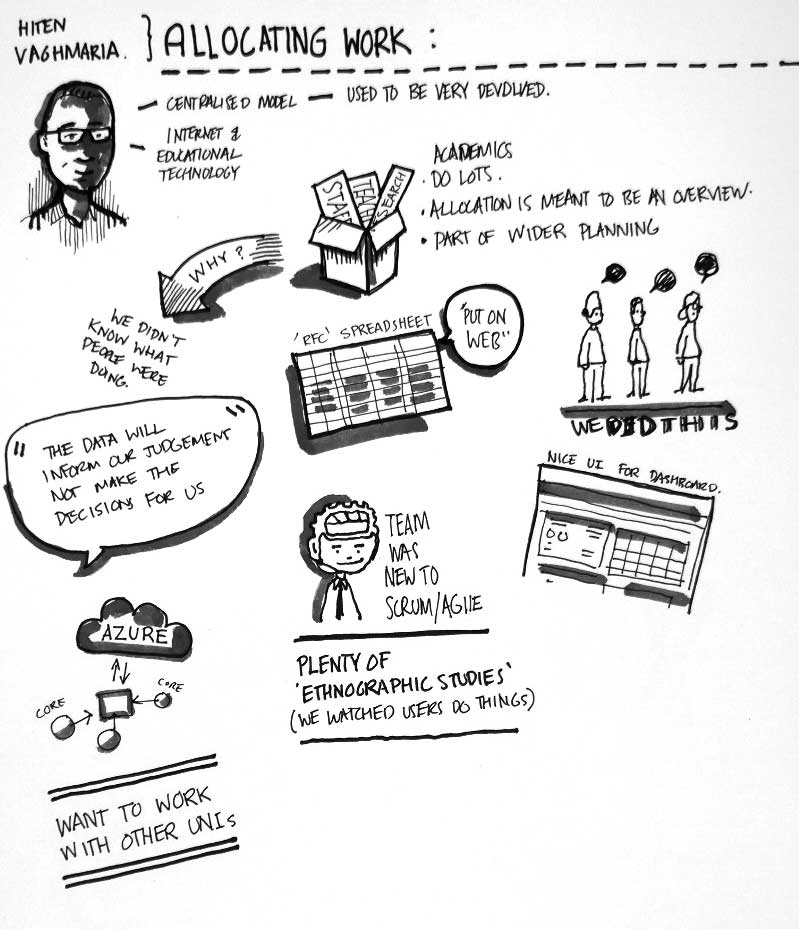 HITEN
VAGHMARIA.
ALLOCATING WORK :
— CENTRALISED MODEL — USED TO BE VERY DEVOLVED.
— INTERNET &
EDUCATIONAL
TECHNOLOGY
STAF
TEACH
SEARCH
ACADEMICS
• DO LOTS.
• ALLOCATION IS MEANT TO BE AN OVERVIEW.
• PART OF WIDER PLANNING
WHY?
WE DIDN'T
KNOW WHAT
PEOPLE WERE
DOING.
'RFC' SPREADSHEET
"PUT ON
WEB"
WE DID THIS
"THE DATA WILL
INFORM OUR JUDGEMENT
NOT MAKE THE
DECISIONS FOR US"
NICE UI FOR DASHBOARD.
TEAM
WAS
NEW TO
SCRUM/AGILE
AZURE
CORE
CORE
PLENTY OF
'ETHNOGRAPHIC STUDIES'
(WE WATCHED USERS DO THINGS)
WANT TO WORK
WITH OTHER UNIs